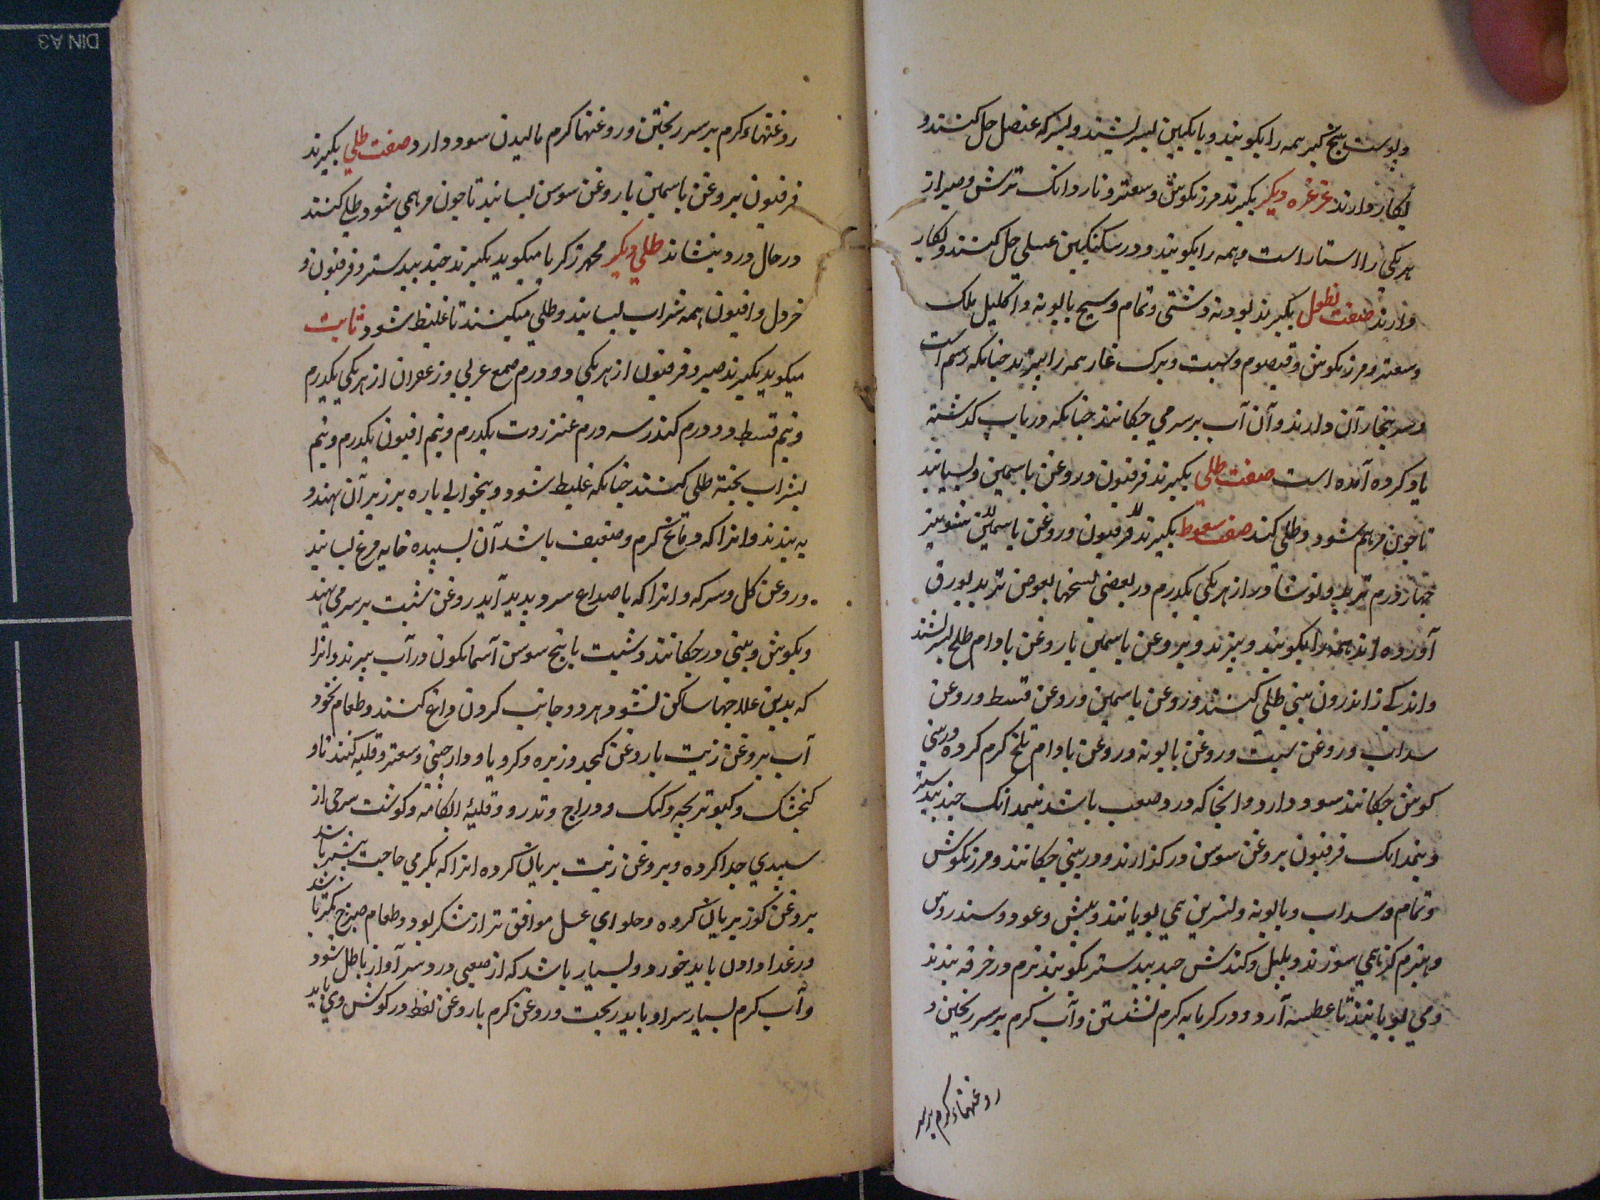 و پوست بیخ کبر همه را بکوبند و بانگبین بسرشند و بسرکه عنصل حل کنند و
بکار دارند غرغره دیگر بکیرند مرزنکوش و سعتر و نار دانک ترش و صبر از
هر یکی را استار است و همه را بکوبند و در سکنکبین عسلی حل کنند و بکار
دارند صفت نطول بکیرند پودنه دشتی و نمام و شیح بابونه و اکلیل ملک
و سعتر و مرزنکوش و قیصوم و شبت و برک غار همه را بپزند جنانکه رسم است
و سر ببخار آن دارند و آن آب بر سر می جکانند جنانکه در باب کذشته
یاد کرده آمده است صفت طلی بکیرند فرفیون و روغن یاسمین و بسایند
تا جون مرهم شود و طلی کند صفت سعوط بکیرند فرفیون و روغن یاسمین شونیز
جهار درم تربد و نوشادر از هر یکی یکدرم در بعضی نسخها بعوض تربد بورق
آورده اند همه را بکوبند و بپزند و بروغن یاسمین یا روغن بادام طلخ بسرشند
و اندکی از اندرون بینی طلی کنند و روغن یاسمین و روغن قسط و روغن
سداب و روغن شبت و روغن بابونه و روغن بادام تلخ کرم کرده در بینی
کوش جکانند سود دارد و انجا که درد صعب باشد نیمدانک جندبیدستر
و نیمدانک فرفیون بروغن سوسن در کذارند و در بینی جکانند و مرزنکوش
و نمام و سداب و بابونه و نسرین می بویانند و مشک و عود و سندروس
و هیزم کز همی سوزند و پلپل و کندش جندبیدستر بکوبند نرم و در خرقه بندند
و می بویانند تا عطسه آرد و در کرمابه کرم نشستن و آب کرم بر سر ریختن و
روغنهاء کرم بر سر
روغنهاء کرم بر سر ریختن و روغنها کرم مالیدن سود دارد صفت طلی بکیرند
فرفیون بروغن یاسمین یا روغن سوسن بسایند تا جون مرهمی شود طلی کنند
در حال درد بنشاند طلی دیکر محمد زکریا میکوید بکیرند جندبیدستر و فرفیون و
خردل و افیون همه بشراب بسایند و طلی میکنند تا غلیظ شود ثابت
میکوید بکیرند صبر و فرفیون از هر یکی دو درم صمغ عربی و زعفران از هر یکی یکدرم
و نیم قسط دو درم کندر سه درم عنزروت یکدرم و نیم افیون یکدرم و نیم
بشراب پخته طلی کنند جنانکه غلیظ شود و پاره بر زبر آن نهند و
ببندند و انرا که دماغ کرم و ضعیف باشد آن بسپیده خایه مرغ بسایند
و روغن کل و سرکه و انرا که با صداع سر دبدید آید روغن شبت بر سر می نهند
و بکوش و بینی در جکانند و شبت با بیخ سوسن آسمانکون در آب بپزند و انرا
که بدین علاجها ساکن نشود هر دو جانب کردن داغ کنند و طعام نخود
آب بروغن زیت یا روغن کنجد و زیره و کرویا و دارجینی و سعتر و قلیه کنند تا و
کنجشک و کبوتر بچه و کبک و دراج و تدرو و قلیهٔ الکامه و کوشت سرخی از
سپیدی جدا کرده و بروغن زیت بریان کرده انرا که بکرمی حاجت بیشتر باشد
بروغن کوز بریان کرده و حلوای عسل موافق تر از شکر بود و طعام بکتر باشد
در غدا و اول باید خورد و بسیار باشد که از صعبی درد سر آواز باطل شود
و آب کرم بسیار بسر او باید ریخت و روغن کرم یا روغن نفط در کوش وی باید